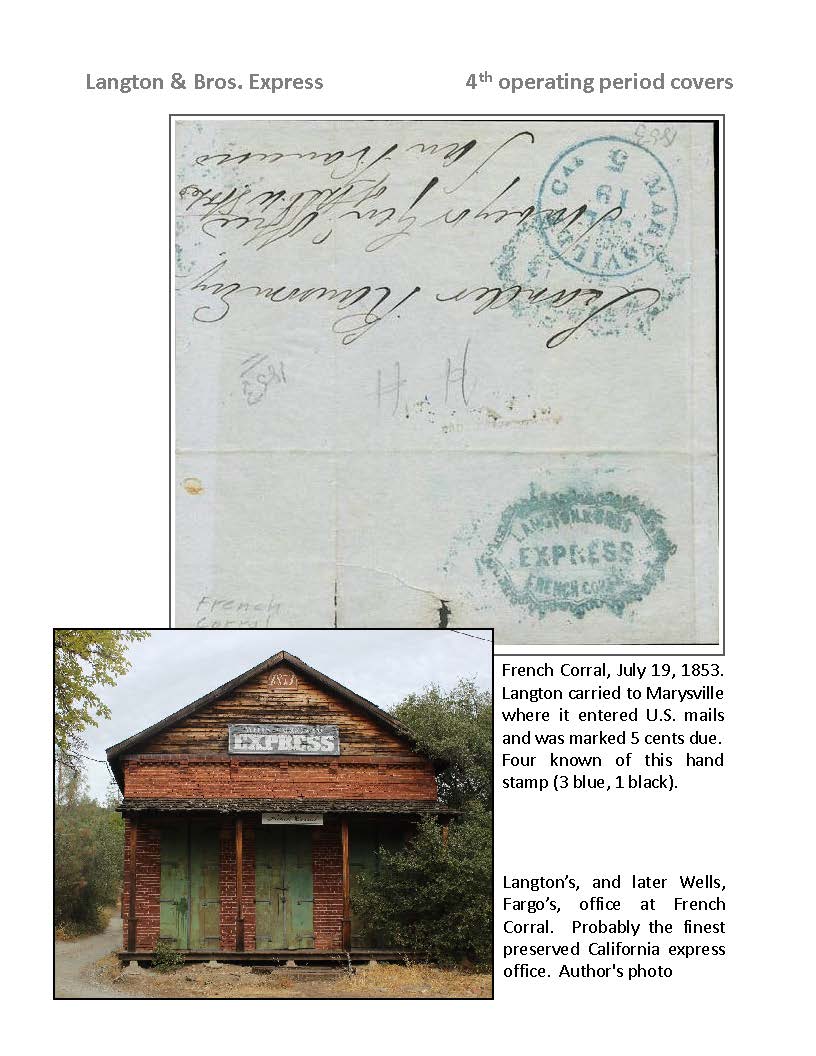 Langton & Bros. Express 4th operating period covers
1853
MARYSVILLE CAL
19
5
San Francisco
Surveyor Gen
Leander Ransom Esq
1853
H H
LANGTON & BRO'S
EXPRESS
FRENCH CORRAL
French
Corral
French Corral, July 19, 1853.
Langton carried to Marysville
where it entered U.S. mails
and was marked 5 cents due.
Four known of this hand
stamp (3 blue, 1 black).
1853
EXPRESS
French Corral
Langton's, and later Wells,
Fargo's, office at French
Corral. Probably the finest
preserved California express
office. Author's photo